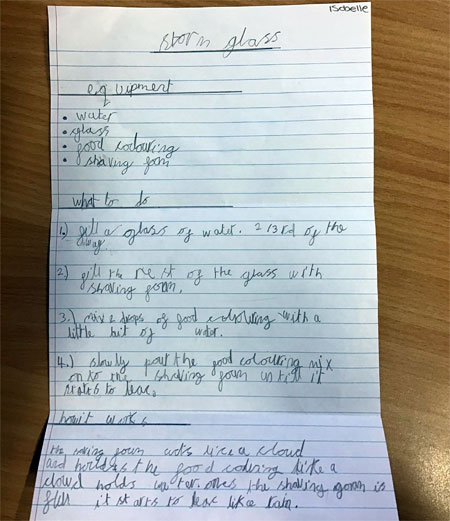 Isabelle
storm glass
equipment
• water
• glass
• food colouring
• shaving foam
what to do
1.) fill a glass of water. 2/3rd of the
away
2) fill the rest of the glass with
shaving foam.
3.) mix drops of food colouring with a
little bit of water.
4.) slowly pour the food colouring mix
on to the shaving foam untill it
starts to leac.
how it works
the shaving foam acts like a cloud
and holds the food coloring like a
cloud holds water. ones the shaving foam is
full it starts to leac like rain.